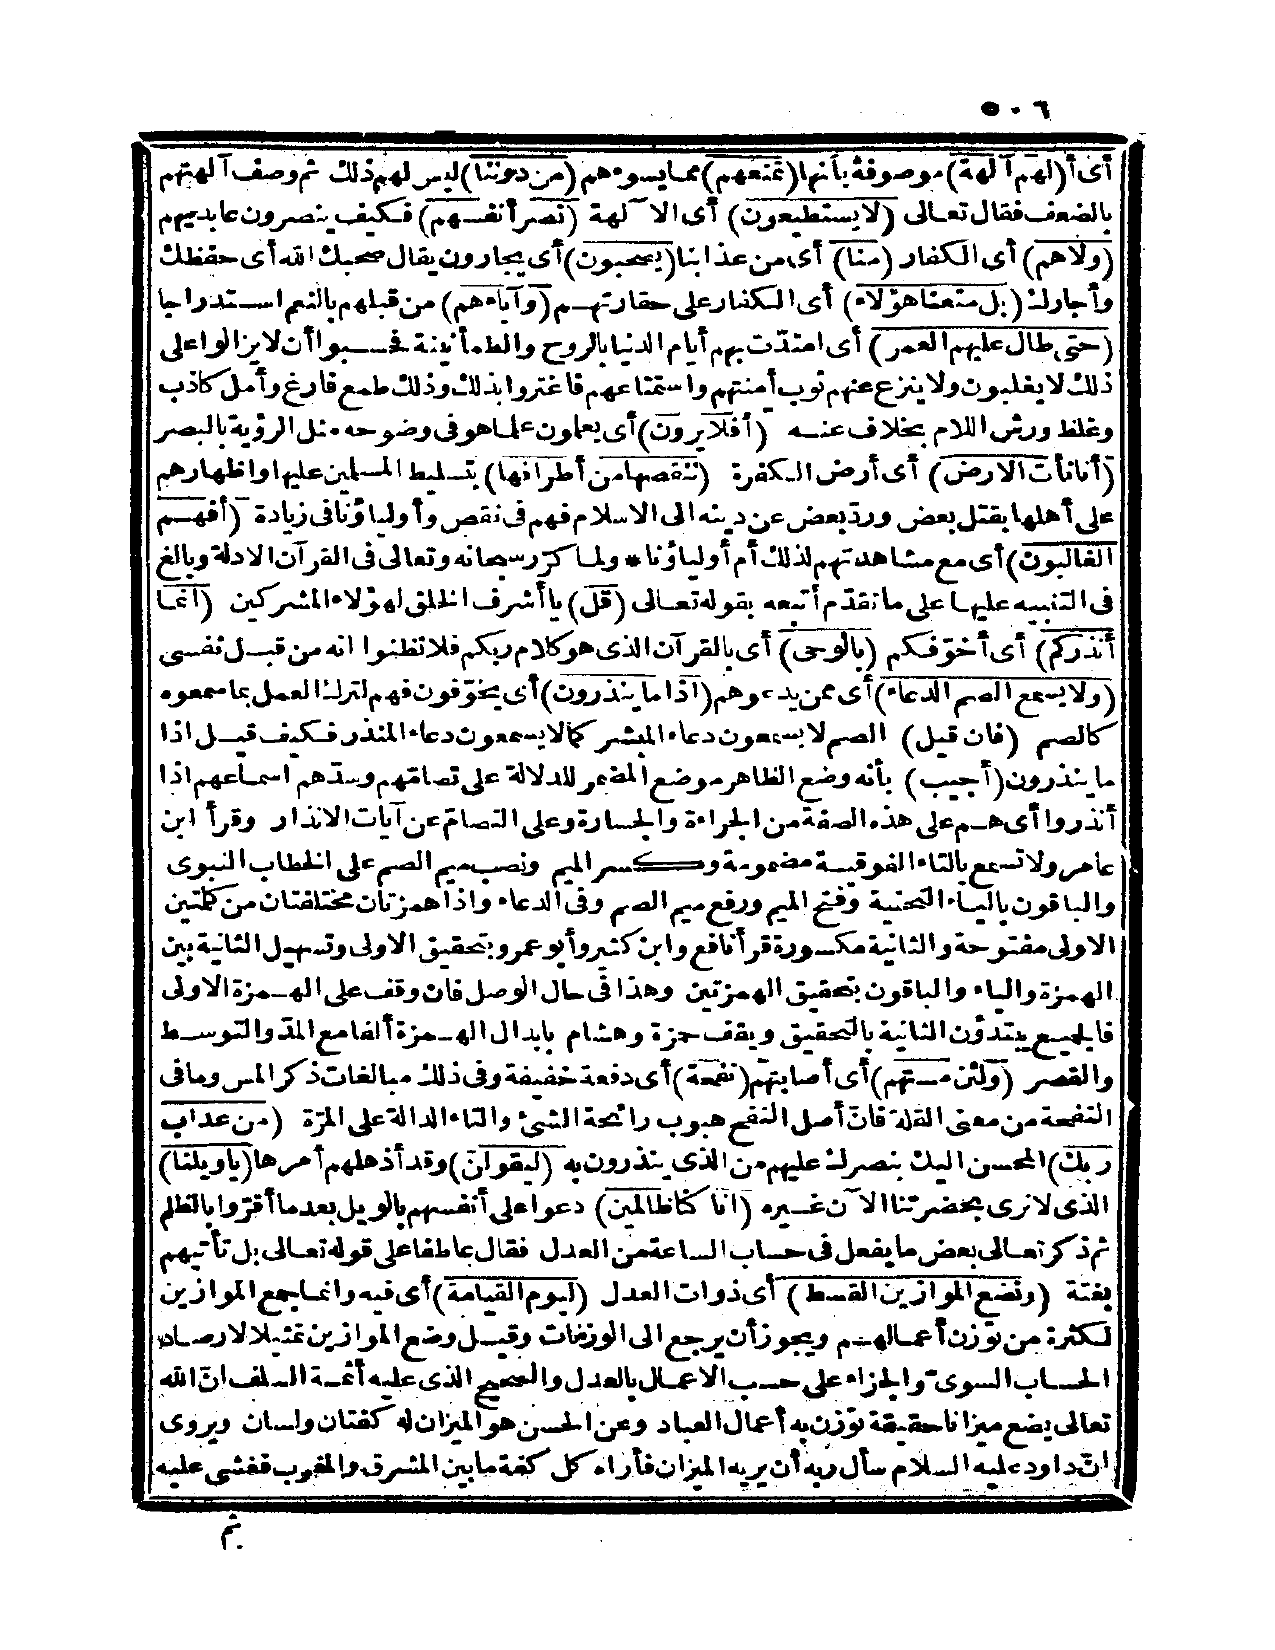 ٥٠٦
أى أ(لهم آلهة) موصوفة بأنها (تمنعهم) مما يسوءهم (من دوننا) ليس لهم ذلك ثم وصف آلهتهم
بالضعف فقال تعالى (لا يستطيعون) أى الآلهة (نصر أنفسهم) فكيف ينصرون عابديهم
(ولاهم) أى الكفار (منا) أى من عذابنا (يصحبون) أى يجارون يقال صحبك الله أى حفظك
وأجارك (بل متعنا هؤلاء) أى الكفار على حقارتهم (وآباءهم) من قبلهم بالنعم استدراجا
(حتى طال عليهم العمر) أى امتدّت بهم أيام الدنيا بالروح والطمأنينة فحسبوا أن لا يزالوا على
ذلك لا يغلبون ولا ينزع عنهم ثوب أمنتهم واستمتاعهم فاغتروا بذلك وذلك طمع فارغ وأمل كاذب
وغلظ ورش اللام بخلاف عنه (أفلا يرون) أى يعلمون علما هو فى وضوحه مثل الرؤية بالبصر
(أنا نأت الارض) أى أرض الكفرة (ننقصها من أطرافها) بتسليط المسلمين عليها واظهارهم
على أهلها بقتل بعض وردّ بعض عن دينه الى الاسلام فهم فى نقص وأولياؤنا فى زيادة (أفهم
الغالبون) أى مع مشاهدتهم لذلك أم أولياؤنا * ولما كرّر سبحانه وتعالى فى القرآن الادلة وبالغ
فى التنبيه عليها على ما تقدم أتبعه بقوله تعالى (قل) يا أشرف الخلق لهؤلاء المشركين (انما
أنذركم) أى أخوّفكم (بالوحى) أى بالقرآن الذى هو كلام ربكم فلا تظنوا انه من قبل نفسى
(ولا يسمع الصم الدعاء) أى ممن يدعوهم (اذا ما ينذرون) أى يخوّفون فهم لترك العمل بما سمعوه
كالصم (فان قيل) الصم لا يسمعون دعاء المبشر كما لا يسمعون دعاء المنذر فكيف قيل اذا
ما ينذرون (أجيب) بأنه وضع الظاهر موضع المضمر للدلالة على تصامّهم وسدّهم اسماعهم اذا
أنذروا أى هم على هذه الصفة من الجراءة والجسارة وعلى التصامّ عن آيات الانذار وقرأ ابن
عامر ولا تسمع بالتاء الفوقية مضمومة وكسر الميم ونصب ميم الصم على الخطاب النبوى
والباقون بالياء التحتية وفتح الميم ورفع ميم الصم وفى الدعاء واذا همزتان مختلفتان من كلمتين
الاولى مفتوحة والثانية مكسورة قرأ نافع وابن كثير وأبو عمرو بتحقيق الاولى وتسهيل الثانية بين
الهمزة والياء والباقون بتحقيق الهمزتين وهذا فى حال الوصل فان وقف على الهمزة الاولى
فالجميع يبتدؤن الثانية بالتحقيق ويقف حمزة وهشام بابدال الهمزة ألفا مع المدّ والتوسط
والقصر (ولئن مستهم) أى أصابتهم (نفحة) أى دفعة خفيفة وفى ذلك مبالغات ذكر المس وما فى
النفحة من معنى القلة فانّ أصل النفح هبوب رائحة الشئ والتاء الدالة على المرّة (من عذاب
ربك) المحسن اليك بنصرك عليهم من الذى ينذرون به (ليقولنّ) وقد أذهلهم أمرها (يا ويلنا)
الذى لا نرى بحضرتنا الآن غيره (انا كنا ظالمين) دعوا على أنفسهم بالويل بعدما أقرّوا بالظلم
ثم ذكر تعالى بعض ما يفعل فى حساب الساعة من العدل فقال عاطفا على قوله تعالى بل تأتيهم
بغتة (ونضع الموازين القسط) أى ذوات العدل (ليوم القيامة) أى فيه وانما جمع الموازين
لكثرة من توزن أعمالهم ويجوز أن يرجع الى الوزنات وقيل وضع الموازين تمثيلا لارصاد
الحساب السوىّ والجزاء على حسب الاعمال بالعدل والصحيح الذى عليه أئمة السلف انّ الله
تعالى يضع ميزانا حقيقة توزن به أعمال العباد وعن الحسن هو الميزان له كفتان ولسان ويروى
انّ داود عليه السلام سأل ربه أن يريه الميزان فأراه كل كفة ما بين المشرق والمغرب فغشى عليه
ثم